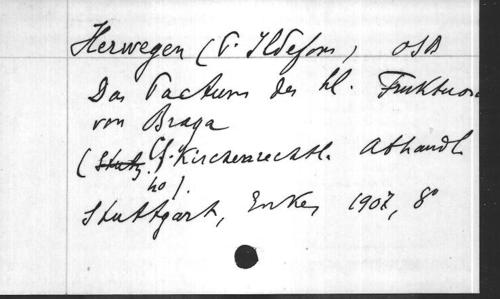 Herwegen (P. Ildefons) OSB
Das Pactum des hl. Fruktuos
von Braga
(Stutz, Kirchenrechtl. Abhandl
40).
Stuttgart, Enke, 1907, 8°